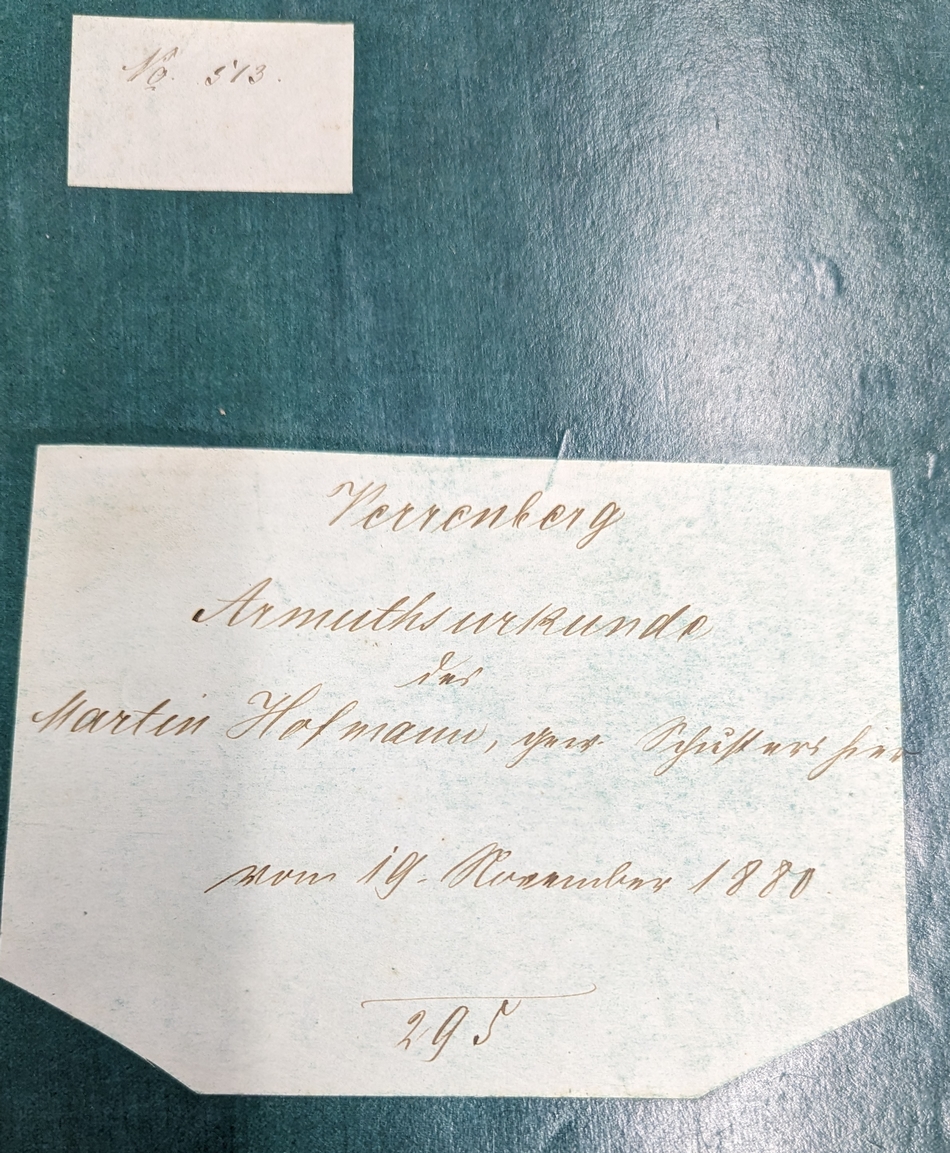 No. 513.
Verrenberg
Armuthsurkunde
des
Martin Hofmann, gew. Schusters hier
vom 19. November 1880
295